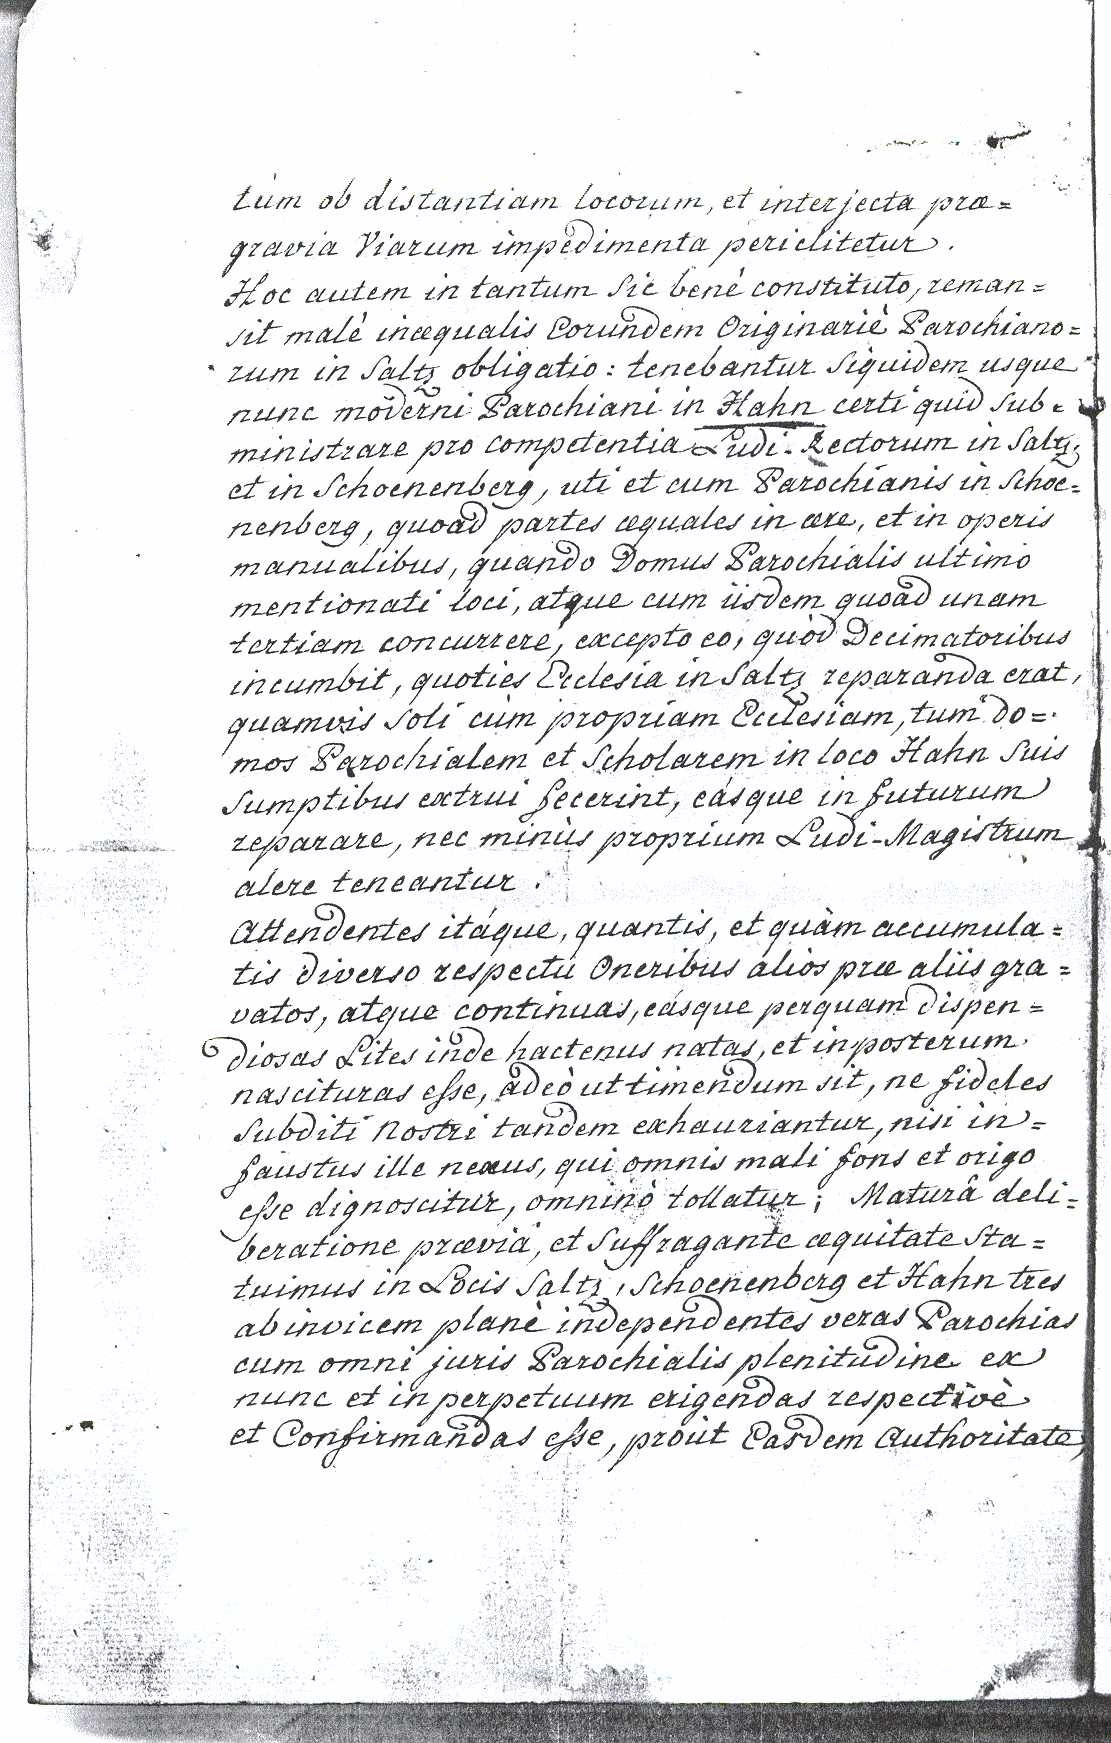 tum ob distantiam locorum, et interjecta præ=
gravia Viarum impedimenta periclitetur.
Hoc autem in tantum sic benè constituto, reman=
sit malè inæqualis Eorundem Originariè Parochiano=
rum in Saltz obligatio: tenebantur siquidem usque
nunc moderni Parochiani in Hahn certi quid sub=
ministrare pro competentia Ludi-Rectorum in Saltz,
et in Schoenenberg, uti et cum Parochianis in Schoe=
nenberg, quoad partes æquales in ære, et in operis
manualibus, quando Domus Parochialis ultimò
mentionati loci, atque cum iisdem quoad unam
tertiam concurrere, excepto eo, quòd Decimatoribus
incumbit, quoties Ecclesia in Saltz reparanda erat,
quamvis soli cùm propriam Ecclesiam, tum do=
mos Parochialem et Scholarem in loco Hahn suis
sumptibus extrui fecerint, eásque in futurum
reparare, nec minùs proprium Ludi-Magistrum
alere teneantur.
Attendentes itáque, quantis, et quàm accumula=
tis diverso respectu Oneribus alios præ aliis gra=
vatos, atque continuas, eásque perquam dispen=
diosas Lites inde hactenus natas, et in posterum
nascituras esse, adeò ut timendum sit, ne fideles
subditi Nostri tandem exhauriantur, nisi in=
faustus ille nexus, qui omnis mali fons et origo
esse dignoscitur, omninò tollatur; Maturâ deli=
beratione præviâ, et suffragante æquitate sta=
tuimus in Locis Saltz, Schoenenberg et Hahn tres
ab invicem planè independentes veras Parochias
cum omni juris Parochialis plenitudine ex
nunc et in perpetuum erigendas respectivè
et Confirmandas esse, proùt Easdem Authoritate